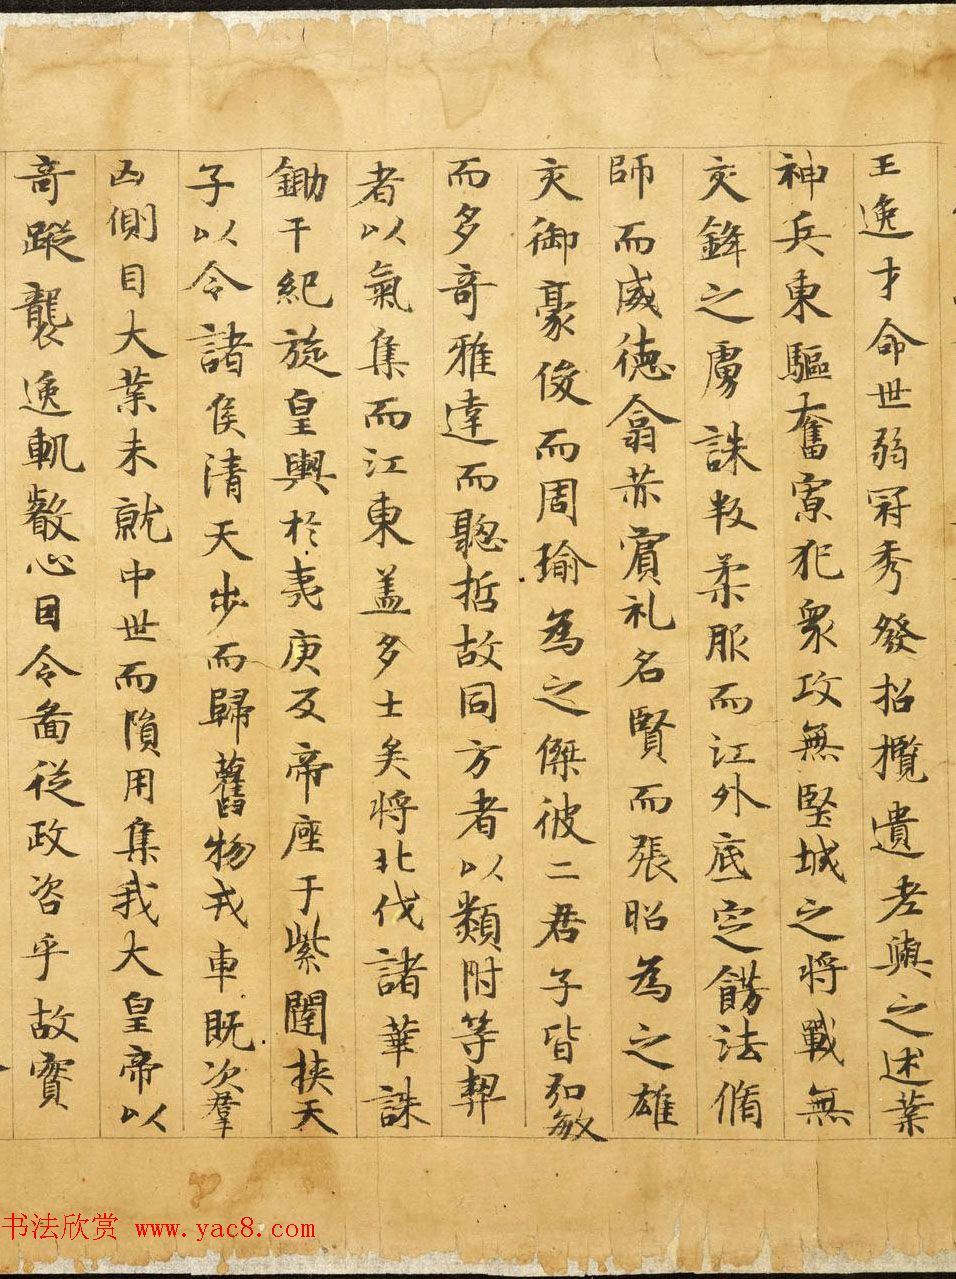 王逸才命世弱冠秀發招攬遺老與之述業
神兵東驅奮寡犯衆攻無堅城之將戰無
交鋒之虜誅叛柔服而江外底定飭法脩
師而威德翕赫賓礼名賢而張昭為之雄
交御豪俊而周瑜為之傑彼二君子皆弘敏
而多奇雅達而聦哲故同方者以類附等契
者以氣集而江東盖多士矣將北伐諸華誅
鋤干紀旋皇輿於夷庚反帝座于紫闥挾天
子以令諸侯清天步而歸舊物戎車既次羣
凶側目大業未就中世而隕用集我大皇帝以
奇蹤襲逸軌叡心因令啚從政咨乎故實
书法欣赏 www.yac8.com